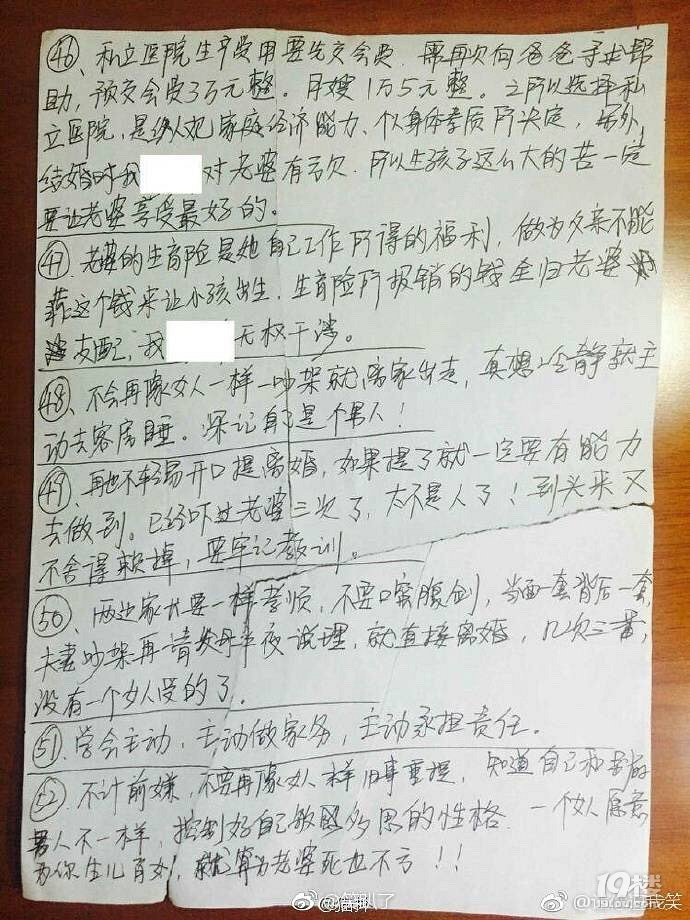 ㊻、私立医院生产费用要先交会费,需再次向爸爸寻求帮
助,预交会费3万元整。月嫂1万5元整。之所以选择私
立医院,是纵人妃家庭经济能力、个人身体素质所决定,另外,
结婚时我 对老婆有亏欠,所以生孩子这么大的苦一定
要让老婆享受最好的。
㊼、老婆的生育险是她自己工作所得的福利,做为父亲不能
靠这个钱来让小孩出生,生育险所报销的钱全归老婆
支配,我 无权干涉。
㊽、不会再像女人一样一吵架就离家出走,真想冷静就主
动去客房睡。深记自己是个男人!
㊾、再也不轻易开口提离婚,如果提了就一定要有能力
去做到。已经吓过老婆三次了,太不是人了!到头来又
不舍得赖掉,要牢记教训。
㊿、两边家长要一样孝顺,不要口蜜腹剑,当面一套背后一套,
夫妻吵架再请父母半夜说理,就直接离婚,几次三番,
没有一个女人受的了。
51、学会主动,主动做家务,主动承担责任。
52、不计前嫌,不要再像女人一样旧事重提,知道自己和
男人不一样,控制好自己敏感多思的性格,一个女人愿意
为你生儿育女,就算为老婆死也不亏!!
19楼
19lou.com